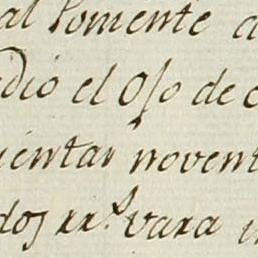 al Pomente a
dio el Oso de c
ientas novent
dos rr.^s vara i